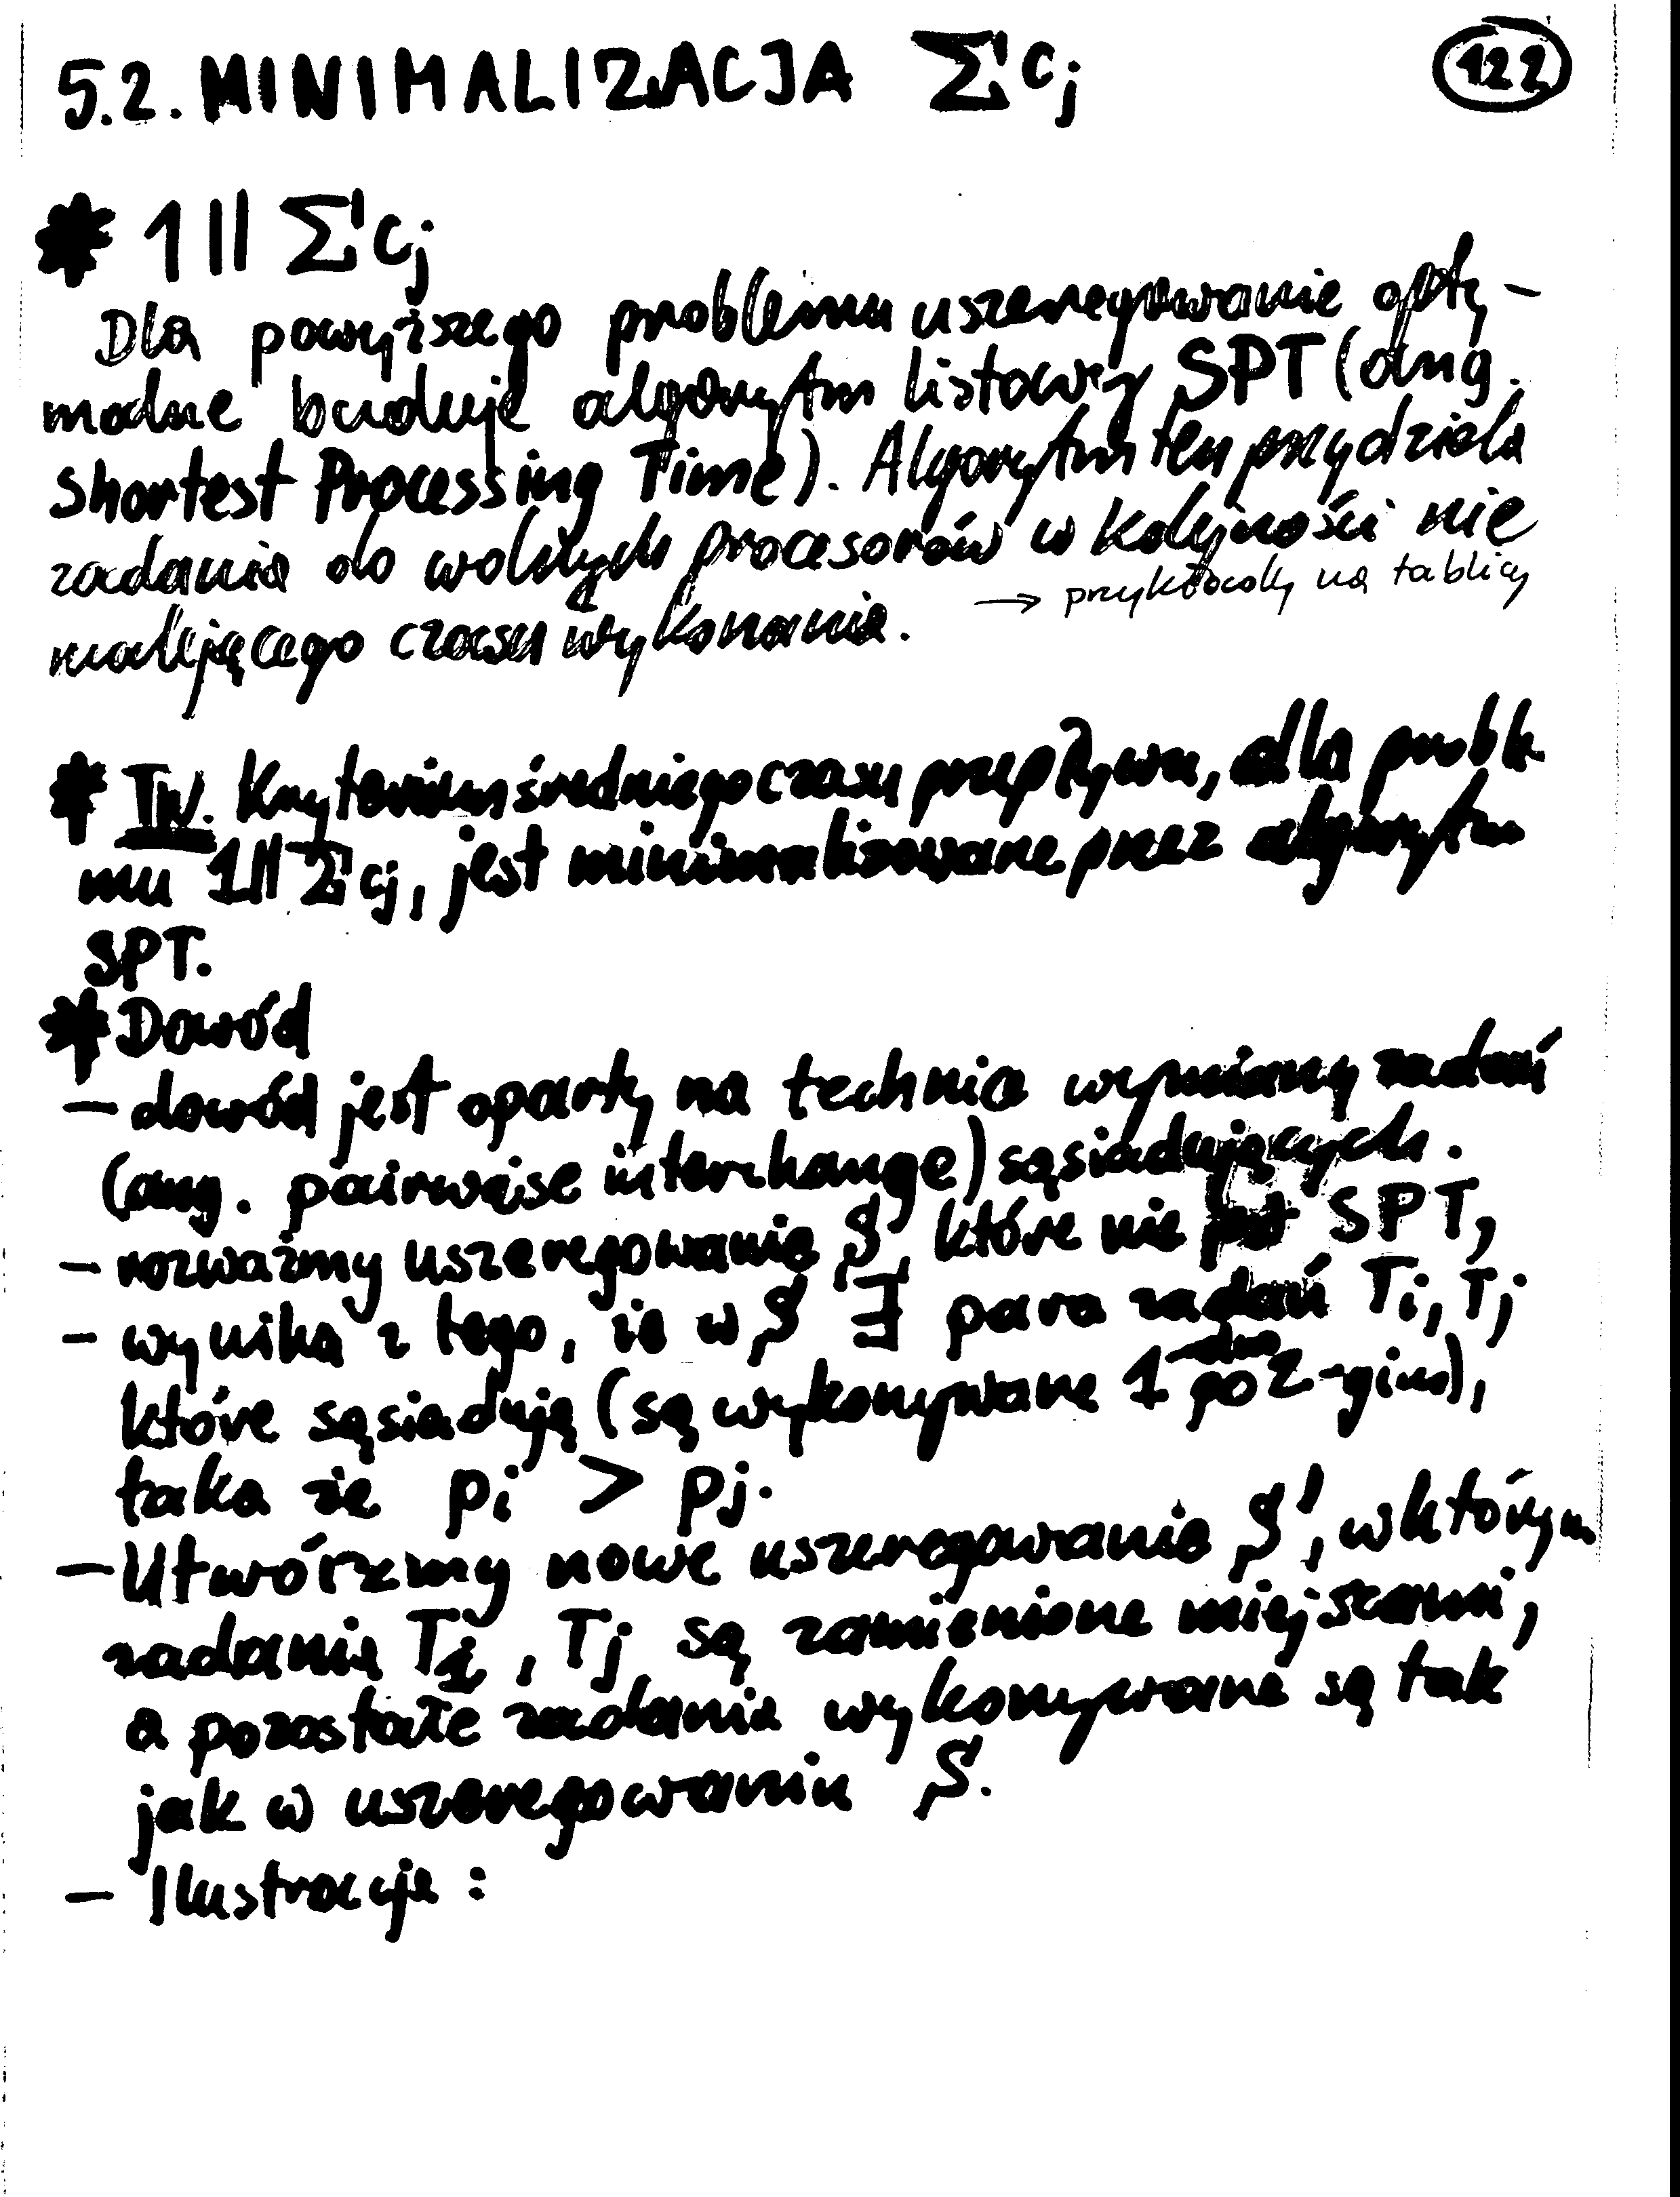 5.2. MINIMALIZACJA Σcj
122
* 1 || Σcj
Dla powyższego problemu uszeregowanie opty-
malne buduje algorytm listowy SPT (ang.
Shortest Processing Time). Algorytm ten przydziela
zadania do wolnych procesorów w kolejności nie
malejącego czasu wykonania.
→ przykłady na tablicy
* TW. Kryterium średniego czasu przepływu, dla proble
mu 1||Σcj, jest minimalizowane przez algorytm
SPT.
* Dowód
- dowód jest oparty na technice wymiany zadań
(ang. pairwaise interchange) sąsiadujących.
- rozważmy uszeregowanie S, które nie jest SPT,
- wynika z tego, że w S ∃ para zadań Ti, Tj
które sąsiadują (są wykonywane 1 po 2-gim),
taka że pi > pj.
- Utwórzmy nowe uszeregowanie S', w którym
zadania Ti, Tj są zamienione miejscami,
a pozostałe zadania wykonywane są tak
jak w uszeregowaniu S.
- Ilustracja :